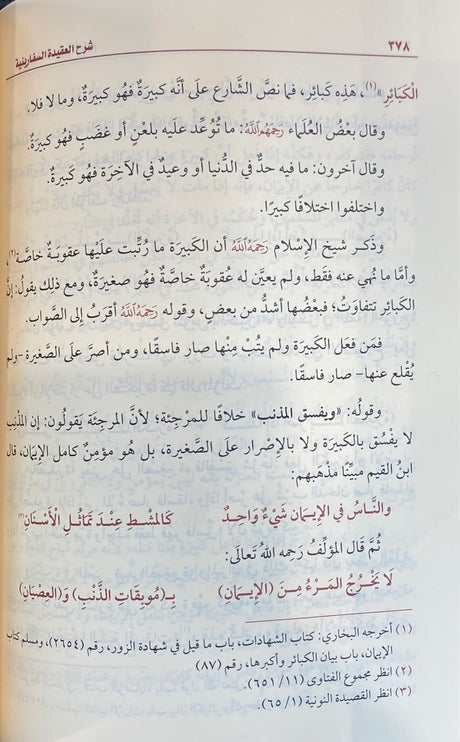 ٣٧٨ شرح العقيدة السفارينية
الْكَبَائِرِ»(١)، هَذِه كَبائِر، فما نصَّ الشَّارع علَى أنَّه كبيرةٌ فهُو كبيرَةٌ، وما لا فلا.
وقال بعْضُ العُلَماء رَحِمَهُمُ اللَّهُ: ما تُوُعِّد علَيه بلَعْنٍ أو غَضَبٍ فهُو كَبيرة.
وقال آخرون: ما فيه حدٌّ في الدُّنيا أو وعيدٌ في الآخِرَة فهُو كَبيرةٌ.
واختلفوا اختلافًا كبيرًا.
وذَكر شيخ الإسْلام رَحِمَهُ اللَّهُ أن الكَبيرَة ما رُتِّبت علَيْها عقوبَةٌ خاصَّة(٢)،
وأمَّا ما نُهي عنه فقط، ولم يعيَّن له عُقوبَةٌ خاصَّةٌ فهُو صغيرَةٌ، ومع ذلك يقولُ: إنَّ
الكبائر تتفاوَتُ؛ فبعْضُها أشدُّ من بعضٍ، وقوله رَحِمَهُ اللَّهُ أقرَبُ إلى الصَّواب.
فمَن فعَل الكَبيرَة ولم يتُبْ مِنْها صار فاسقًا، ومن أصرَّ علَى الصَّغيرة -ولم
يُقْلع عنها- صار فاسقًا.
وقولُه: «ويفسق المذنب» خلافًا للمرجِئَة؛ لأنَّ المرجئَة يَقولُون: إن المذْنِب
لا يَفْسُق بالكَبيرَة ولا بالإصْرار علَى الصَّغيرة، بل هُو مؤمنٌ كامل الإيمَان، قال
ابنُ القيم مبيِّنًا مذْهَبهم:
والنَّاسُ في الإيـمانِ شَيْءٌ وَاحِـدٌ كالمشْطِ عِنْـدَ تمَاثُـلِ الْأَسْنَانِ(٣)
ثُمَّ قَال المؤلِّفُ رَحِمه اللهُ تعَالَى:
لَا يَخْرُجُ المَرْءُ مِـنَ (الإِيـمَانِ) بِـ(مُوبِقَاتِ الذَّنْبِ) وَ(العِصْيَانِ)
(١) أخرجه البخاري: كتاب الشهادات، باب ما قيل في شهادة الزور، رقم (٢٦٥٤)، ومسلم كتاب
الإيمان، باب بيان الكبائر وأكبرها، رقم (٨٧)
(٢) انظر مجموع الفتاوى (١١/ ٦٥١).
(٣) انظر القصيدة النونية (١/ ٦٥).